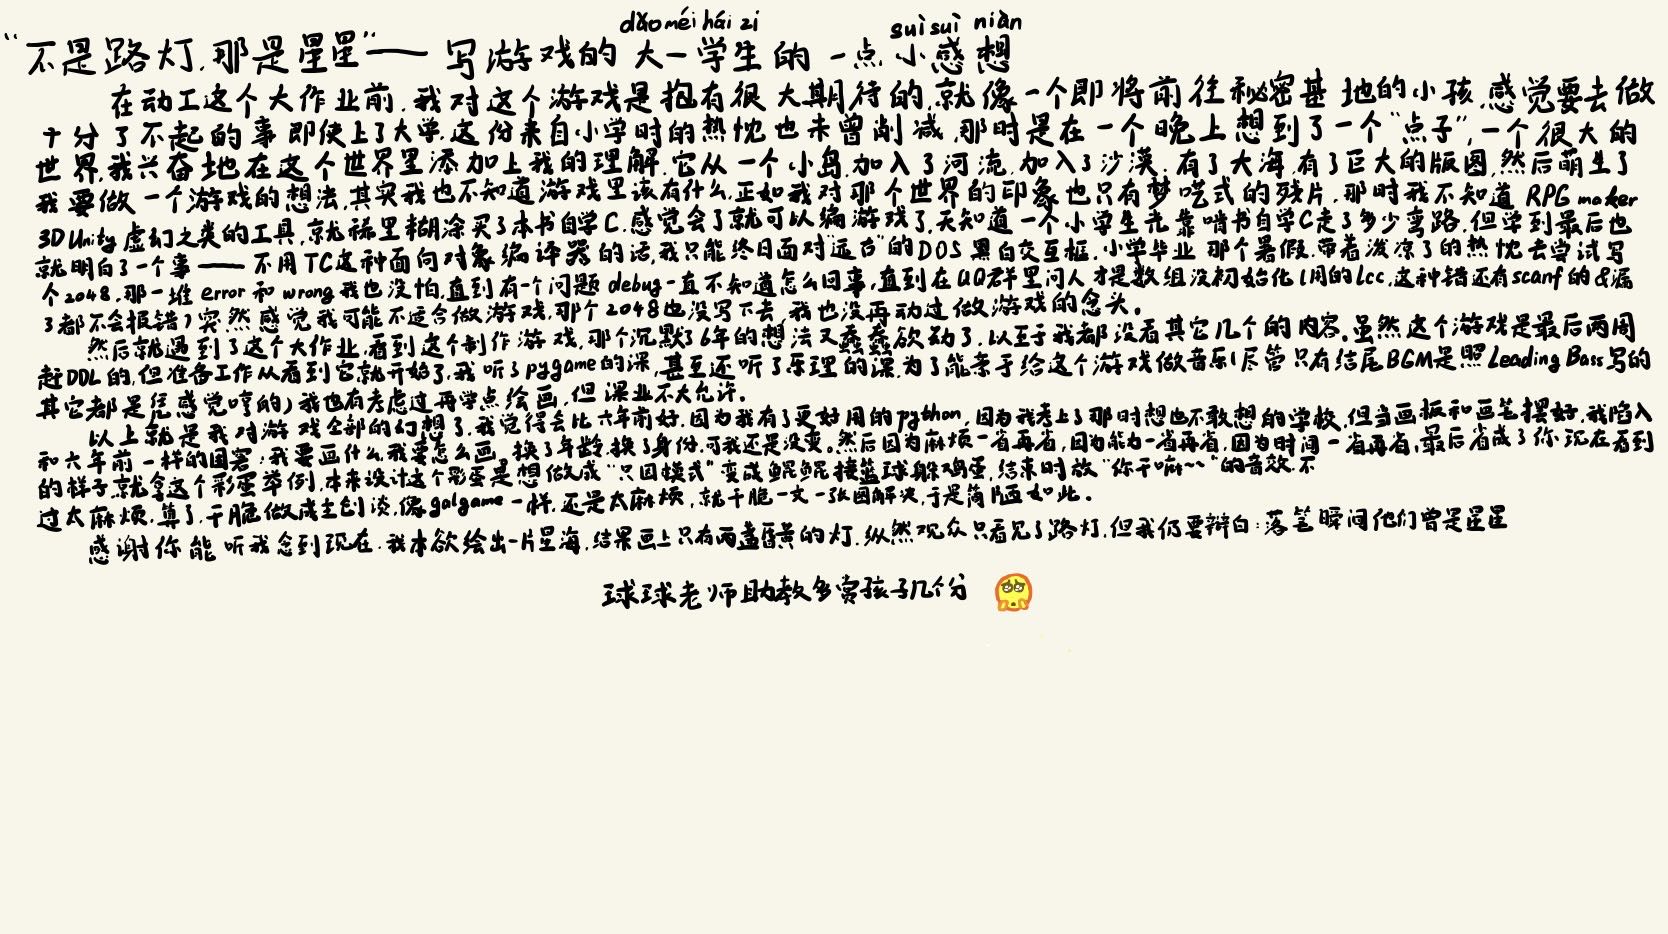 dǎo méi hái zi suì suì niàn
“不是路灯,那是星星”——写游戏的大一学生的一点小感想
在动工这个大作业前,我对这个游戏是抱有很大期待的,就像一个即将前往秘密基地的小孩,感觉要去做
十分了不起的事.即使上了大学,这份来自小学时的热忱也未曾削减,那时是在一个晚上想到了一个“点子”,一个很大的
世界,我兴奋地在这个世界里添加上我的理解,它从一个小岛,加入了河流,加入了沙漠,有了大海,有了巨大的版图,然后萌生了
我要做一个游戏的想法,其实我也不知道游戏里该有什么,正如我对那个世界的印象也只有梦呓式的残片,那时我不知道RPG maker
3D Unity 虚幻之类的工具,就稀里糊涂买了本书自学C,感觉会了就可以编游戏了,天知道一个小学生光靠啃书自学C走了多少弯路,但学到最后也
就明白了一个事——不用TC这种面向对象编译器的话,我只能终日面对远古的DOS黑白交互框.小学毕业那个暑假,带着泼凉了的热忱去尝试写
个2048,那一堆error和wrong我也没怕,直到有一个问题debug一直不知道怎么回事,直到在QQ群里问人才是数组没初始化(用的lcc,这种错还有scanf的&漏
了都不会报错)突然感觉我可能不适合做游戏,那个2048也没写下去,我也没再动过做游戏的念头.
然后就遇到了这个大作业,看到这个制作游戏,那个沉默了6年的想法又蠢蠢欲动了,以至于我都没看其它几个的内容.虽然这个游戏是最后两周
赶DDL的,但准备工作从看到它就开始了,我听了pygame的课,甚至还听了乐理的课,为了能亲手给这个游戏做音乐(尽管只有结尾BGM是照Leading Bass写的
其它都是凭感觉哼的)我也有考虑过再学点绘画,但课业不大允许.
以上就是我对游戏全部的幻想了,我觉得会比六年前好,因为我有了更好用的python,因为我考上了那时想也不敢想的学校,但当画板和画笔摆好,我陷入
和六年前一样的困窘:我要画什么,我要怎么画,换了年龄,换了身份,可我还是没变.然后因为麻烦一省再省,因为能力一省再省,因为时间一省再省,最后省成了你现在看到
的样子,就拿这个彩蛋举例,本来设计这个彩蛋是想做成“只因模式”变成鲲鲲接篮球躲鸡蛋,结束时放“你干嘛~~”的音效,不
过太麻烦,算了,干脆做成主创谈,像galgame一样,还是太麻烦,就干脆一文一张图解决,于是简陋如此.
感谢你能听我念到现在.我本欲绘出一片星海,结果画上只有两盏昏黄的灯.纵然观众只看见了路灯,但我仍要辩白:落笔瞬间他们曾是星星
球球老师助教多赏孩子几个分